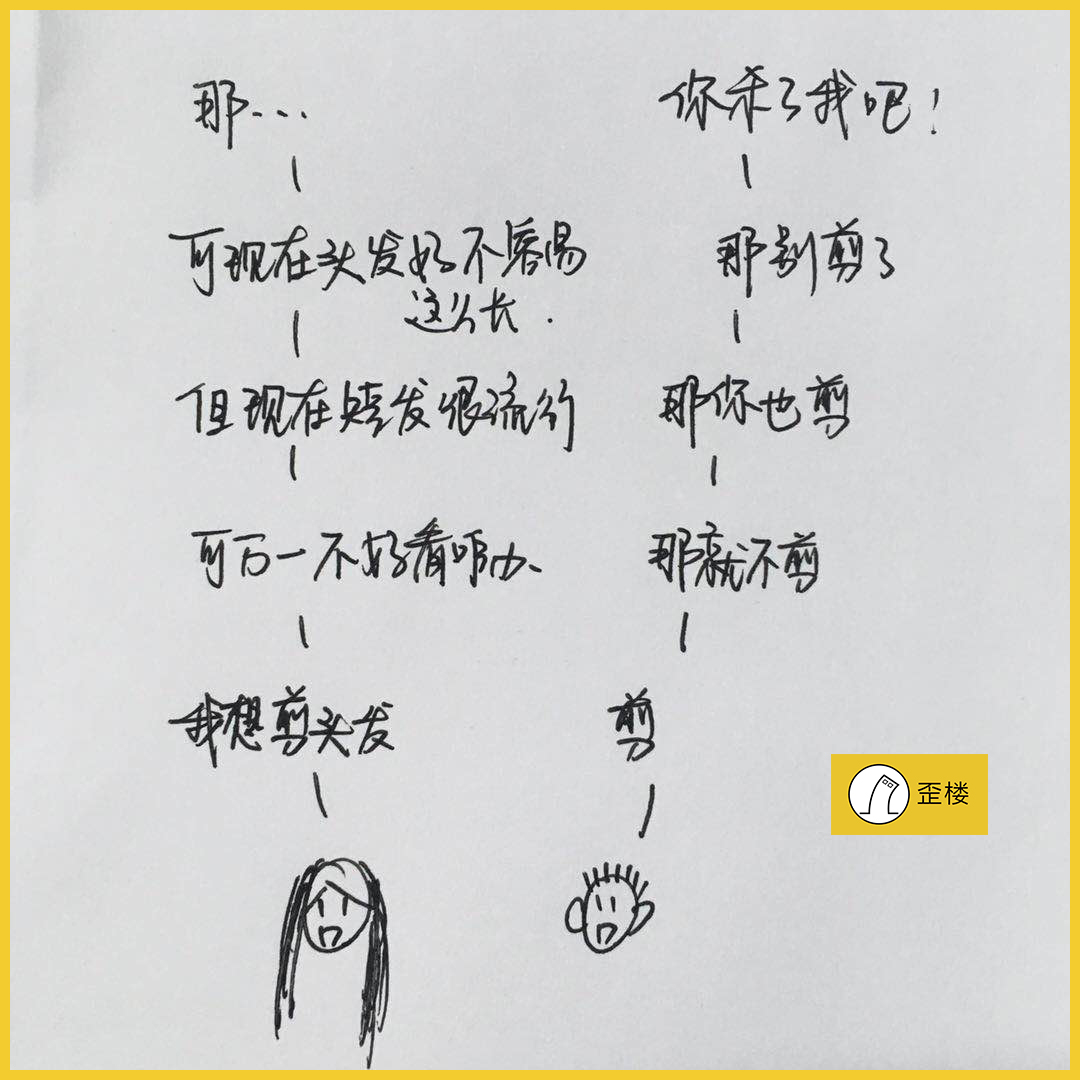 那...
你杀了我吧!
可现在头发好不容易
这么长.
那别剪了
但现在短发很流行
那你也剪
可万一不好看咋办、
那就不剪
我想剪头发
剪
歪楼